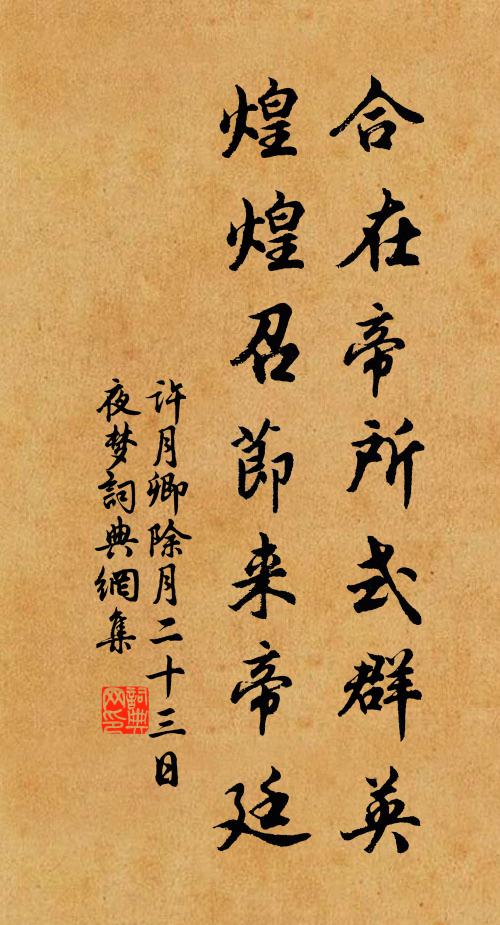 合在帝所式群英
煌煌召節来帝廷
許月卿除月二十三日
夜梦詞典網集
詞典
网印